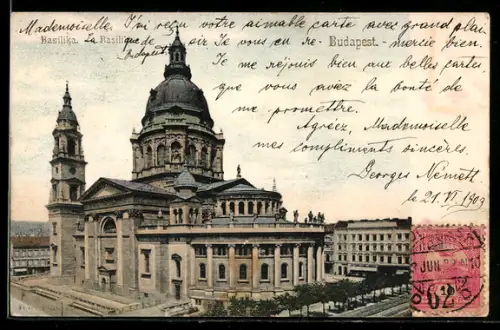 Mademoiselle. J'ai reçu votre aimable carte avec grand plai-
Basilika. La Basilique de Budapest
sir Je vous en re- Budapest. - mercie bien.
Je me réjouis bien aux belles cartes
que vous avez la bonté de
me promettre.
Agréez, Mademoiselle
mes compliments sincères.
Georges Németh
le 21. VI 1909
JUN 22
62